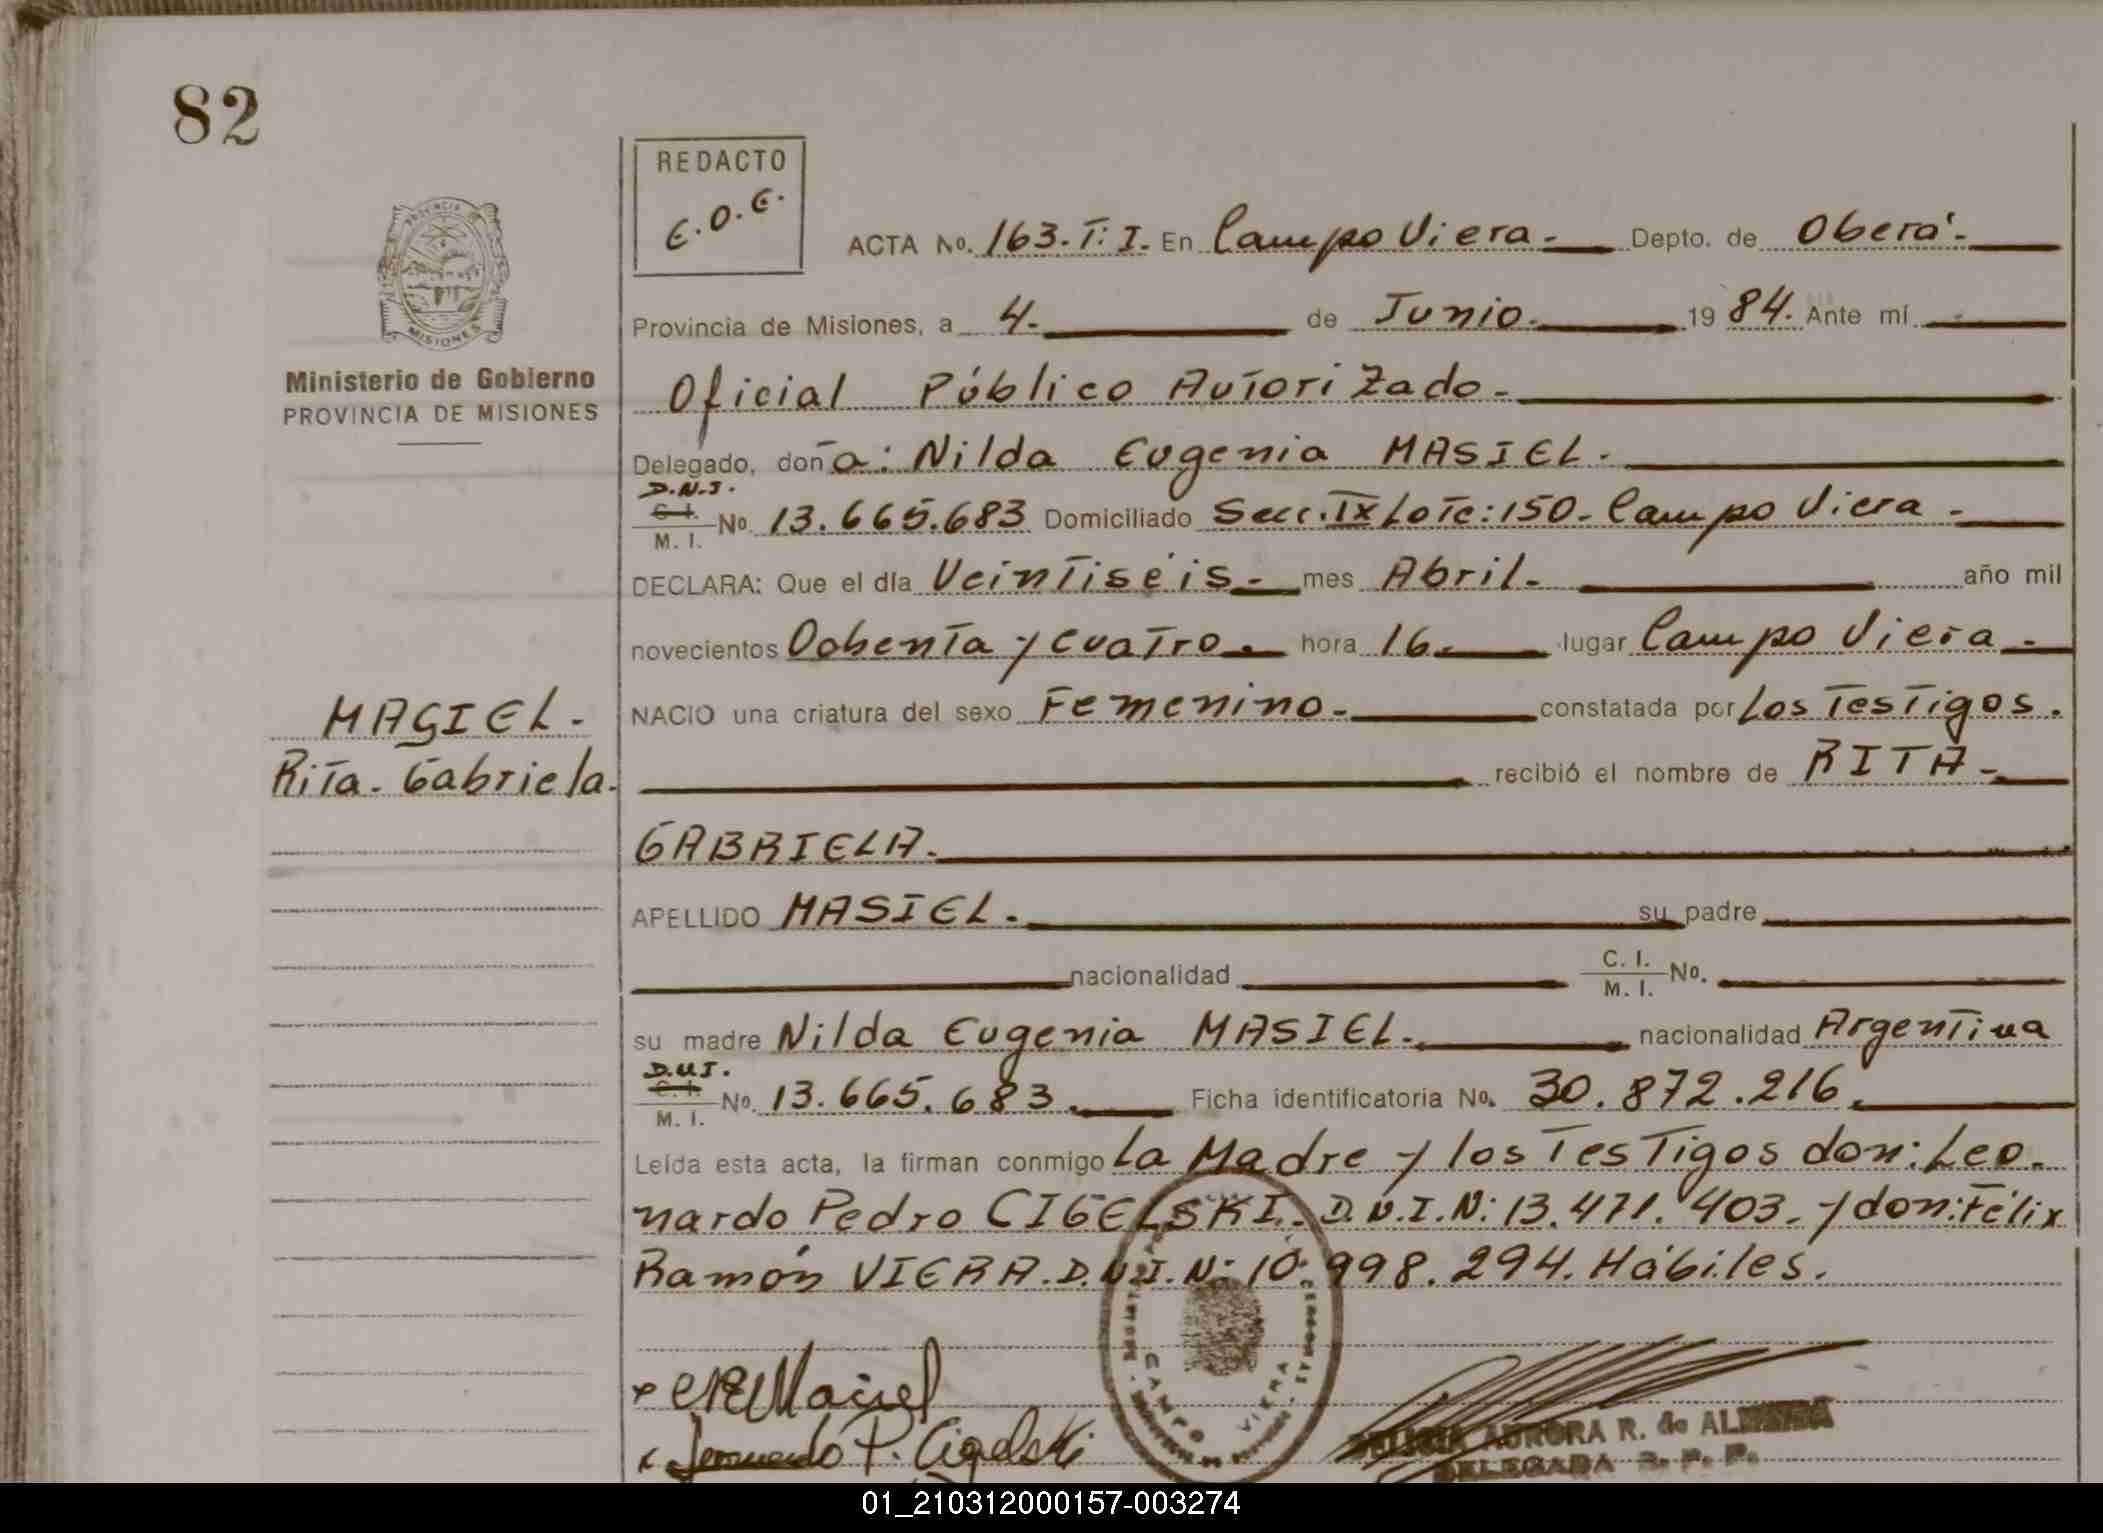 82
REDACTO
E.O.E.
ACTA No. 163.T:I. En Campo Viera.- Depto. de Oberá.-
Provincia de Misiones, a 4.- de Junio.- 19 84. Ante mí
Oficial Público Autorizado.-
PROVINCIA DE MISIONES
Ministerio de Gobierno
PROVINCIA DE MISIONES
Delegado, doña: Nilda Eugenia MASIEL.
D.N.I.
C. I. / M. I. No. 13.665.683 Domiciliado Secc.IX Lote:150.- Campo Viera.-
DECLARA: Que el día Veintiséis.- mes Abril.- año mil
novecientos Ochenta y cuatro.- hora 16.- lugar Campo Viera.-
NACIO una criatura del sexo Femenino.- constatada por Los Testigos.
MASIEL.-
Rita.Gabriela.
recibió el nombre de RITA.-
GABRIELA.
APELLIDO MASIEL. su padre
nacionalidad C. I. / M. I. No.
su madre Nilda Eugenia MASIEL. nacionalidad Argentina
D.N.I.
C. I. / M. I. No. 13.665.683. Ficha identificatoria No. 30.872.216.
Leída esta acta, la firman conmigo La Madre y los Testigos don: Leo-
nardo Pedro CIGELSKI.- D.N.I.N: 13.471.403.- y don: Félix
Ramón VIERA.D.N.I.N: 10.998.294. Hábiles.
CAMPO VIERA
Maciel
P. Cigelski
AURORA R. de
DELEGADA R. P. P.
01_210312000157-003274